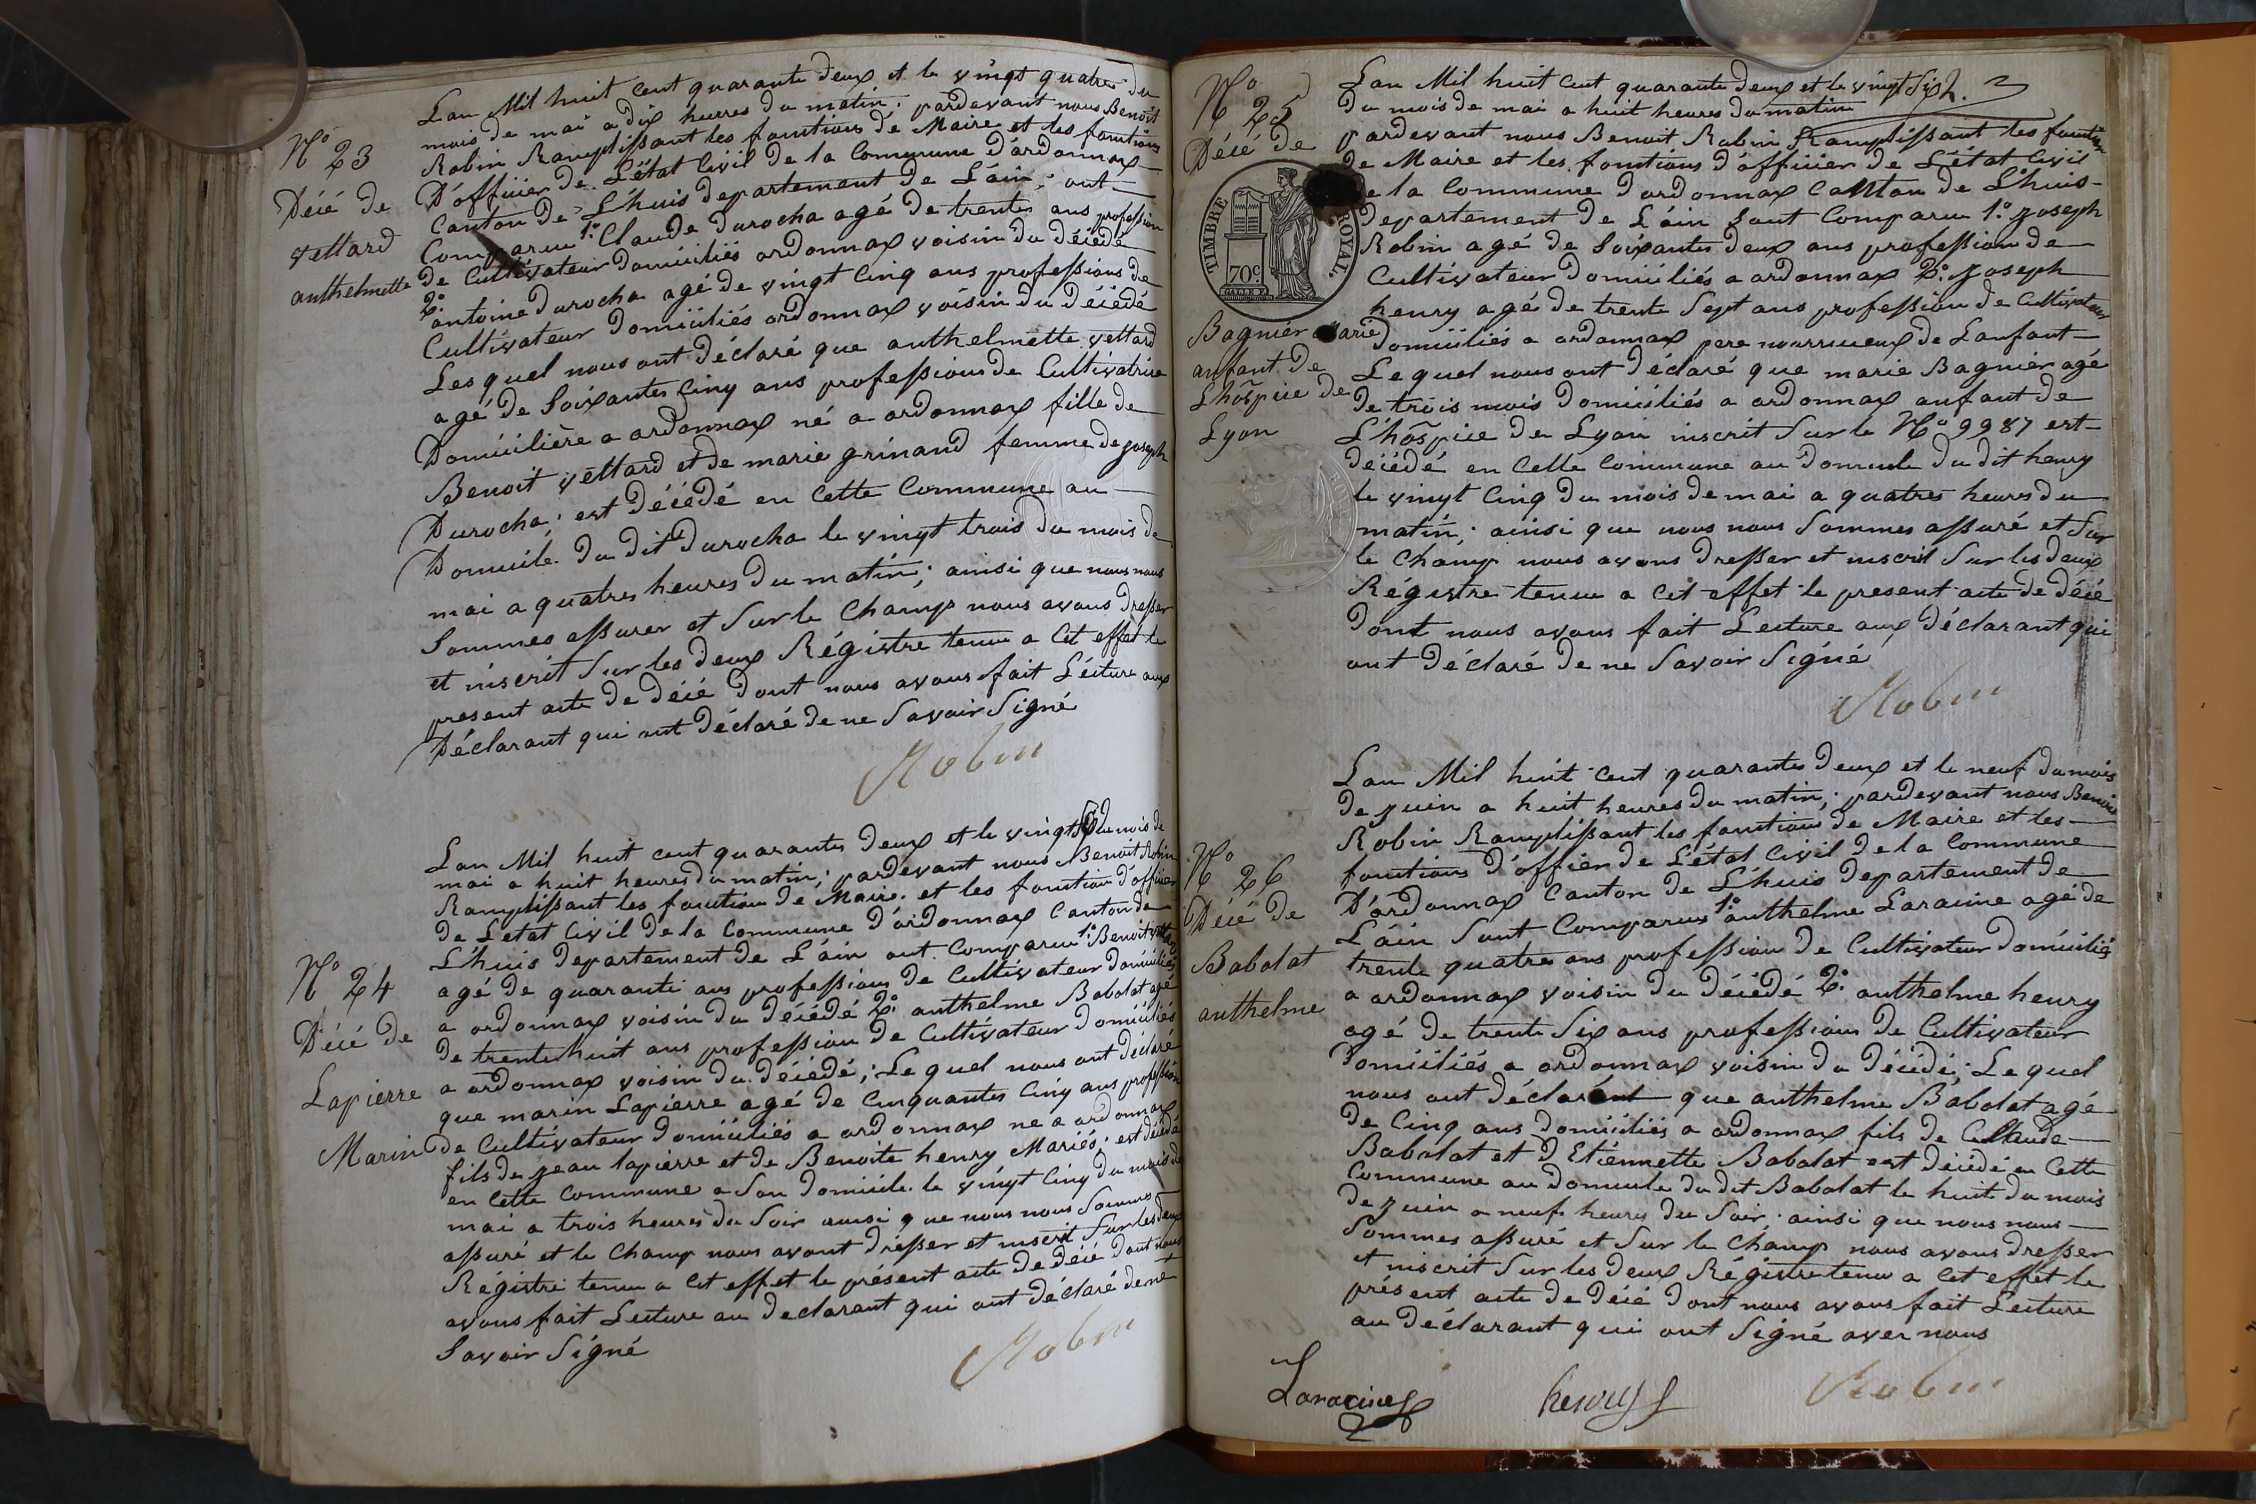 N.o 23
Décé de
vettard
anthelmette
Lan Mil huit cent quarante deux et le vingt quatre du
mois de mai a dix heures du matin; pardevant nous Benoît
Robin Ramplissant les fonctions de Maire et les fonctions
D'officier de L'état Civil de la Commune d'ardonnax
Canton de L'huis departement de L'áin; ont
Comparu 1.o Claude Durocha agé de trente ans profession
de Cultivateur domiciliés ordonnax voisin du décédé
2.o antoine Durocha agé de vingt Cinq ans professions de
Cultivateur Domiciliés ordonnax voisin du décédé
Lesquel nous ont déclaré que anthelmette vettard
agé de Soixantes Cinq ans professions de Cultivatrice
Domicilière a ordonnax né a ordonnax fille de
Benoit vettard et de marie grinand femme de joseph
Durocha; est décédé en Cette Commune au
Domicile du dit Durocha le vingt trois du mois de
mai a quatres heures du matin; ainsi que nous nous
Sommes assurer et Sur le Champ nous avons dresser
et inscrit Sur les deux Régistre tenu a Cet effet le
present acte de décé dont nous avons fait Lécture aux
Déclarant qui ont déclaré de ne Savoir Signé
Robin
N.o 24
Décé de
Lapierre
Marin
Lan Mil huit cent quarantes deux et le vingt du mois de
mai a huit heures du matin; pardevant nous Benoit Robin
Ramplissant les fonction de Maire et les fonction d'officier
de L'etat Civil de la Commune d'ardonnax Canton de
L'huis departement de L'áin ont Comparu 1.o Benoit vettard
agé de quarante ans professions de Cultivateur domiciliés
a ordonnax voisin du décédé 2.o anthelme Babolat agé
de trente huit ans profession de Cultivateur domiciliés
a ordonnax voisin du décédé; Lequel nous ont déclaré
que marin Lapierre agé de Cinquantes Cinq ans profession
de Cultivateur domiciliés a ordonnax né a ordonnax
fils de jean lapierre et de Benoite henry Mariés; est décédé
en Cette Commune a Son domicile le vingt Cinq du mois de
mai a trois heures du Soir ainsi que nous nous Sommes
assuré et le Champ nous avont drésser et inscrit Sur les deux
Registre tenu a Cet effet le présent acte de décé dont nous
avons fait Lecture au declarant qui ont déclaré de ne
Savoir Signé
Robin
N.o 25
Décé de
TIMBRE ROYAL.
70c
Bagnier Marie
anfant de
L'hôspice de
Lyon
Lan Mil huit cent quarante deux et le vingt Six.
du mois de mai a huit heures du matin
pardevant nous Benoit Robin Ramplissant les fonction
de Maire et les fonctions d'officier de L'état Civil
de la Commune d'ardonnax Canton de L'huis
Departement de L'áin Sont Comparu 1.o joseph
Robin agé de Soixantes deux ans professions de
Cultivateur domiciliés a ordonnax 2.o joseph
henry agé de trente Sept ans profession de Cultivateur
domiciliés a ordonnax pere nourricieux de Lanfant
Lequel nous ont déclaré que marie Bagnier agé
de trois mois domiciliés a ordonnax anfant de
L'hôspice de Lyon inscrit Sur le N.o 9987 est
décédé en Celle Commune au domicile du dit henry
le vingt Cinq du mois de mai a quatres heures du
matin; ainsi que nous nous Sommes assuré et Sur
le Champ nous avons dresser et inscrit Sur les deux
Régistre tenu a Cet effet le present acte de décé
dont nous avons fait Lecture aux déclarant qui
ont déclaré de ne Savoir Signé
Robin
N.o 26
Décé de
Babolat
anthelme
Lan Mil huit cent quarantes deux et le neuf du mois
de juin a huit heures du matin; pardevant nous Benoit
Robin Ramplissant les fonctions de Maire et les
fonctions d'offier de L'état Civil de la Commune
D'árdonnax Canton de L'huis departement de
L'áin Sont Comparus 1.o anthelme Laracine agé de
trente quatres ans profession de Cultivateur domiciliés
a ordonnax voisin du décédé 2.o anthelme henry
agé de trente Six ans professions de Cultivateur
domiciliés a ordonnax voisin du décédé; Lequel
nous ont déclarént que anthelme Babolat agé
de Cinq ans domiciliés a ordonnax fils de Cllaude
Babolat et d'Etiennette Babolat est décédé en Cette
Commune au domicile du dit Babolat le huit du mois
de juin a neuf heures du Soir; ainsi que nous nous
Sommes assuré et Sur le Champ nous avons dresser
et inscrit Sur les deux Régistre tenu a Cet effet le
présent acte de décé dont nous avons fait Lecture
au déclarant qui ont Signé avec nous
Laracine henry Robin